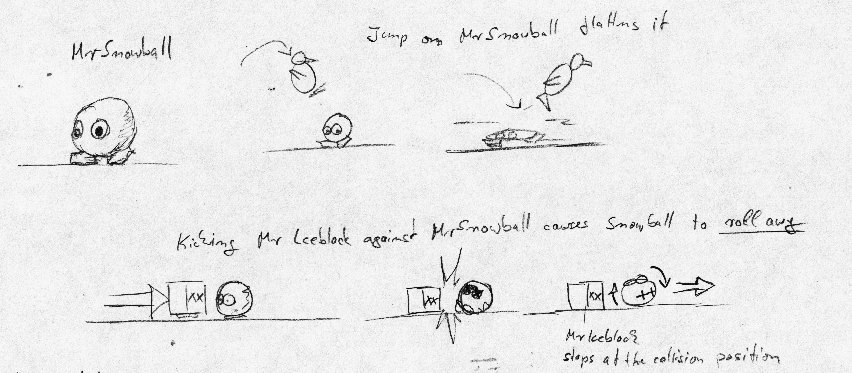 MrSnowball
Jump on MrSnowball flattns it
Kicking Mr Iceblock against MrSnowball causes Snowball to roll away
XX
XX
XX
MrIceblock
stops at the collision position